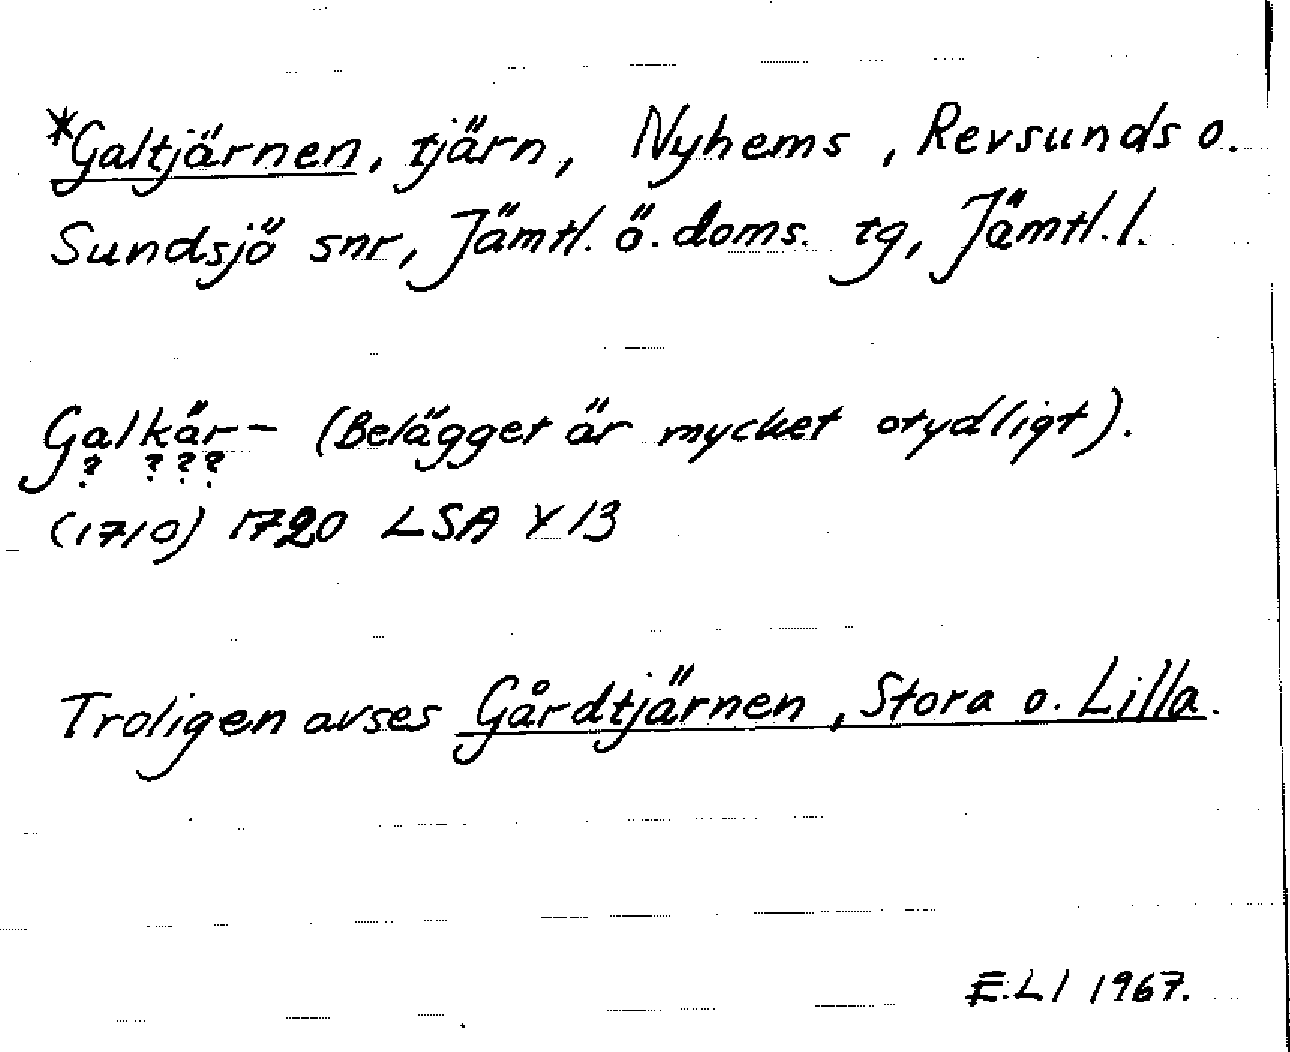 *Galtjärnen, tjärn, Nyhems, Revsunds o.
Sundsjö snr, Jämtl. ö. doms. tg, Jämtl. l.
Galkär- (Belägget är mycket otydligt).
? ? ? ?
(1710) 1720 LSA Y 13
Troligen avses Gårdtjärnen, Stora o. Lilla.
E.LI 1967.